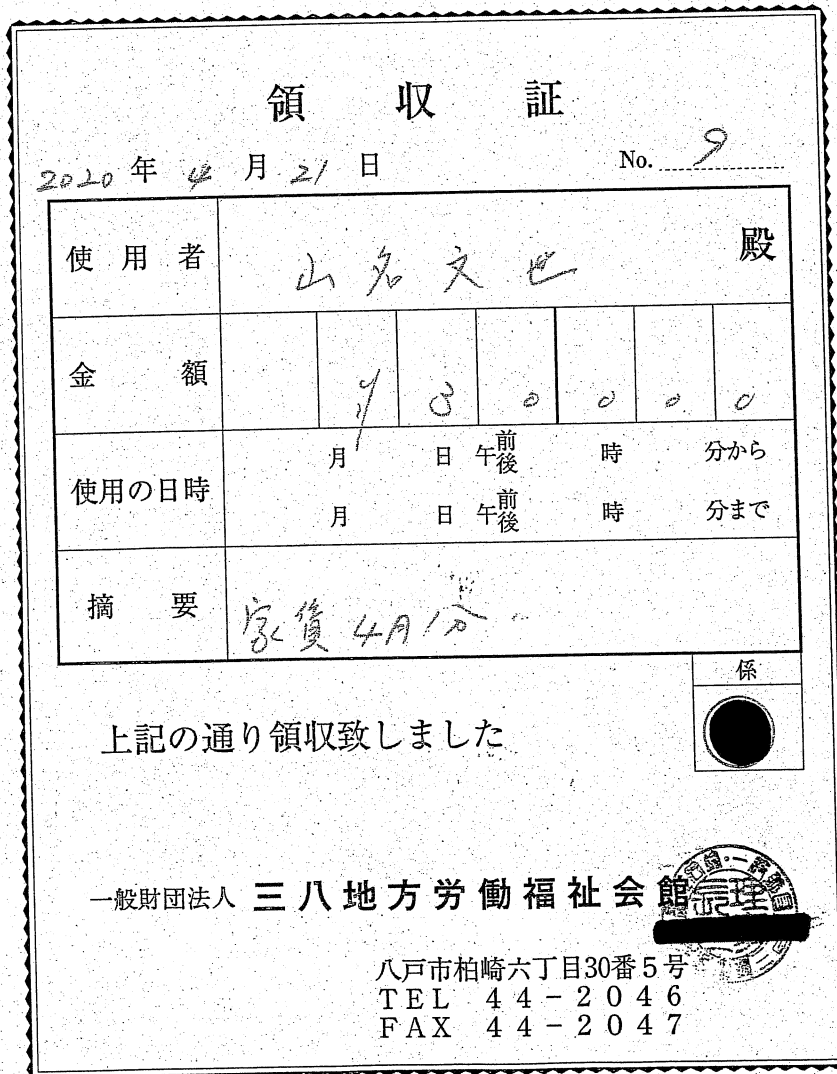 領収証
2020年 4月 21日 No. 9
使用者 山名文也 殿
金額 ¥30000
使用の日時 月 日 午前後 時 分から
月 日 午前後 時 分まで
摘要 家賃4月分
係
上記の通り領収致しました
一般財団法人 三八地方労働福祉会館
八戸市柏崎六丁目30番5号
TEL 44-2046
FAX 44-2047